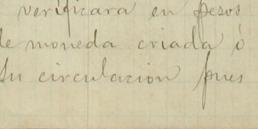 verificara en pesos
de moneda criada ó
su circulacion pues